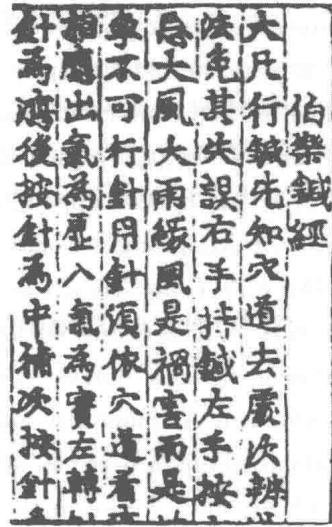 伯樂鍼經
大凡行鍼先知穴道去處次辨
法免其失誤右手持鍼左手按
忌大風大雨緣風是禍害雨是
争不可行針用針須依穴道看
相應出氣為虛入氣為實左轉
針為瀉後按針為中補次按針